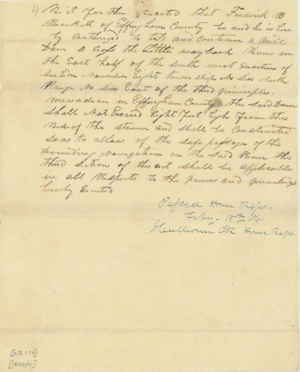 4 Be it further Enacted that Fredrick B
Blackwell of Effingham County be and he is here
by Authorised to bild and Continue a Mill
Dam a Cross the Little waybash River on
the East half of the South west quarter of
Section Number Eight township No Six North
Range No Six East of the third principle
meredian in Effingham County the Said Dam
Shall Not Exceed Eight feet high from the
bed of the stream and Shall be Constructed
so as to allow of the safe passage of the
Navigation on the Said River the
third Section of this act Shall be applicable
in all Respects to the powers and
hereby Granted
Passed House Reps.
Feby. 18th /41
Clk House Reps.